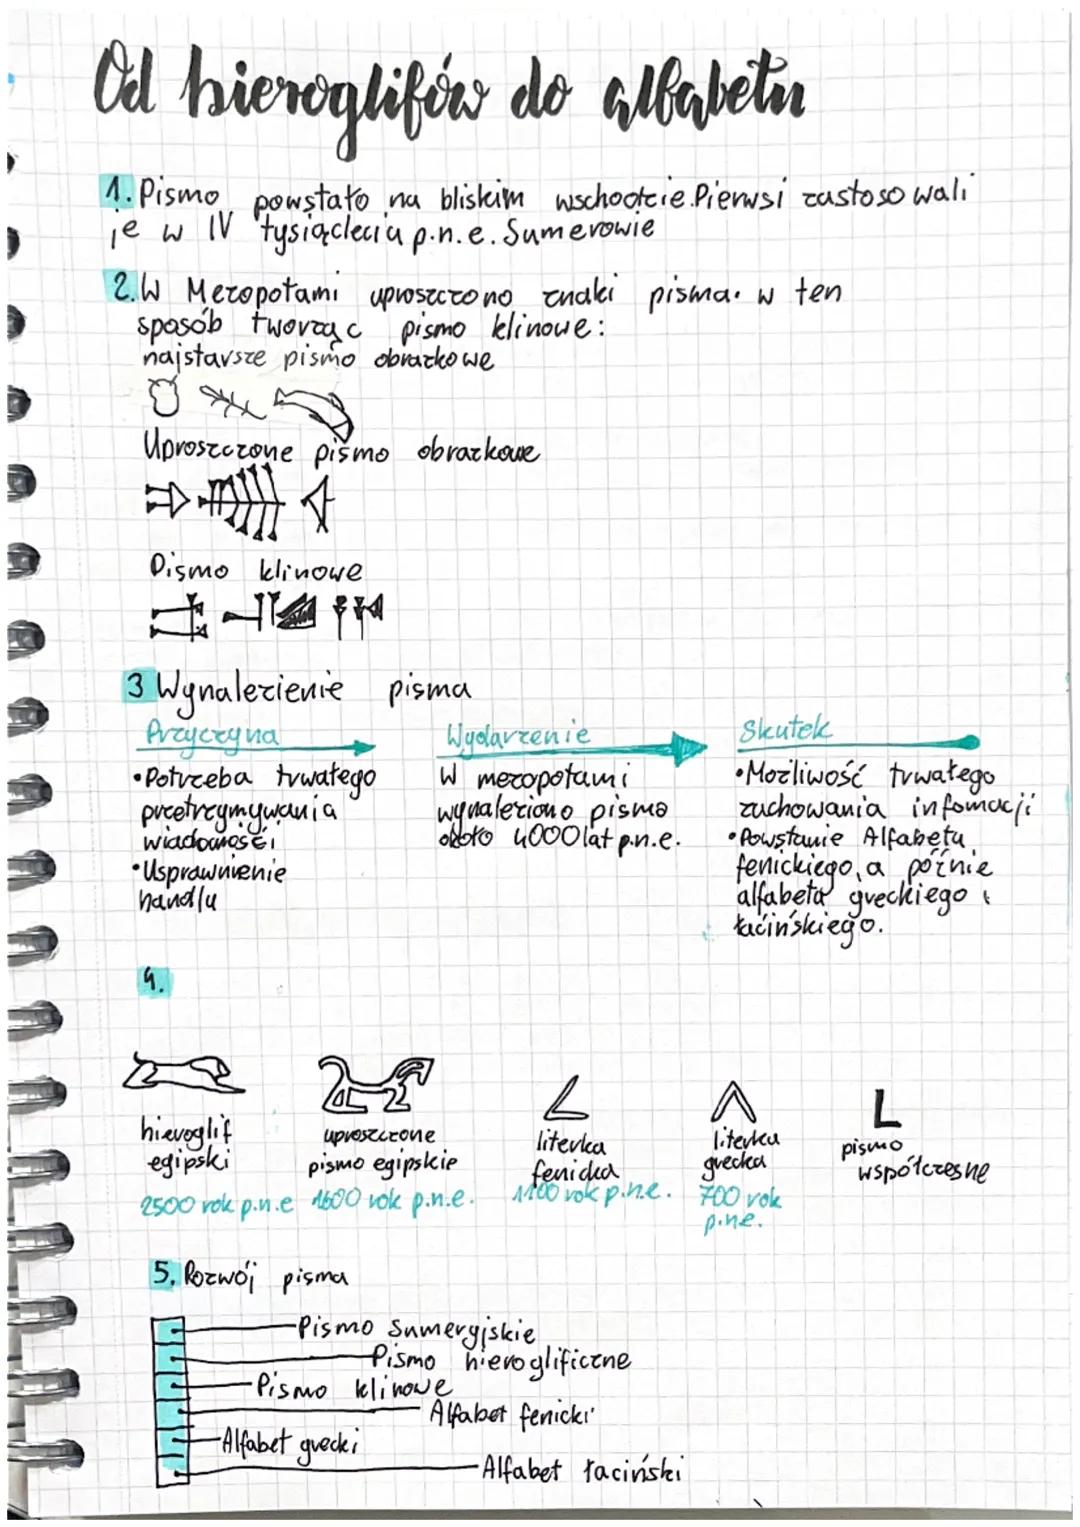 Od hieroglifów do alfabetu
1. Pismo powstało na bliskim wschodzie. Pierwsi zastosowali
je w IV tysiącleciu p.n.e. Sumerowie
2. W Mezopotami uproszczono znaki pisma. w ten
sposób tworząc pismo klinowe:
najstarsze pismo obrazkowe
Uproszczone pismo obrazkowe
Pismo klinowe
3 Wynalezienie pisma
Przyczyna
• Potrzeba trwałego
przetrzymywania
wiadomości
• Usprawnienie
handlu
Wydarzenie
W mezopotami
wynaleziono pismo
około 4000 lat p.n.e.
Skutek
• Możliwość trwałego
zachowania infomacji
• Powstanie Alfabetu
fenickiego, a póżnie
alfabeta greckiego i
łacińskiego.
4.
hieroglif
egipski
2500 rok p.n.e
uproszczone
pismo egipskie
1600 rok p.n.e.
literka
fenicka
1100 rok p.n.e.
literka
grecka
700 rok
p.n.e.
L
pismo
współczesne
5. Rozwój pisma
Pismo sumeryjskie
Pismo hieroglificzne
Pismo klinowe
Alfabet fenicki
Alfabet grecki
Alfabet łaciński